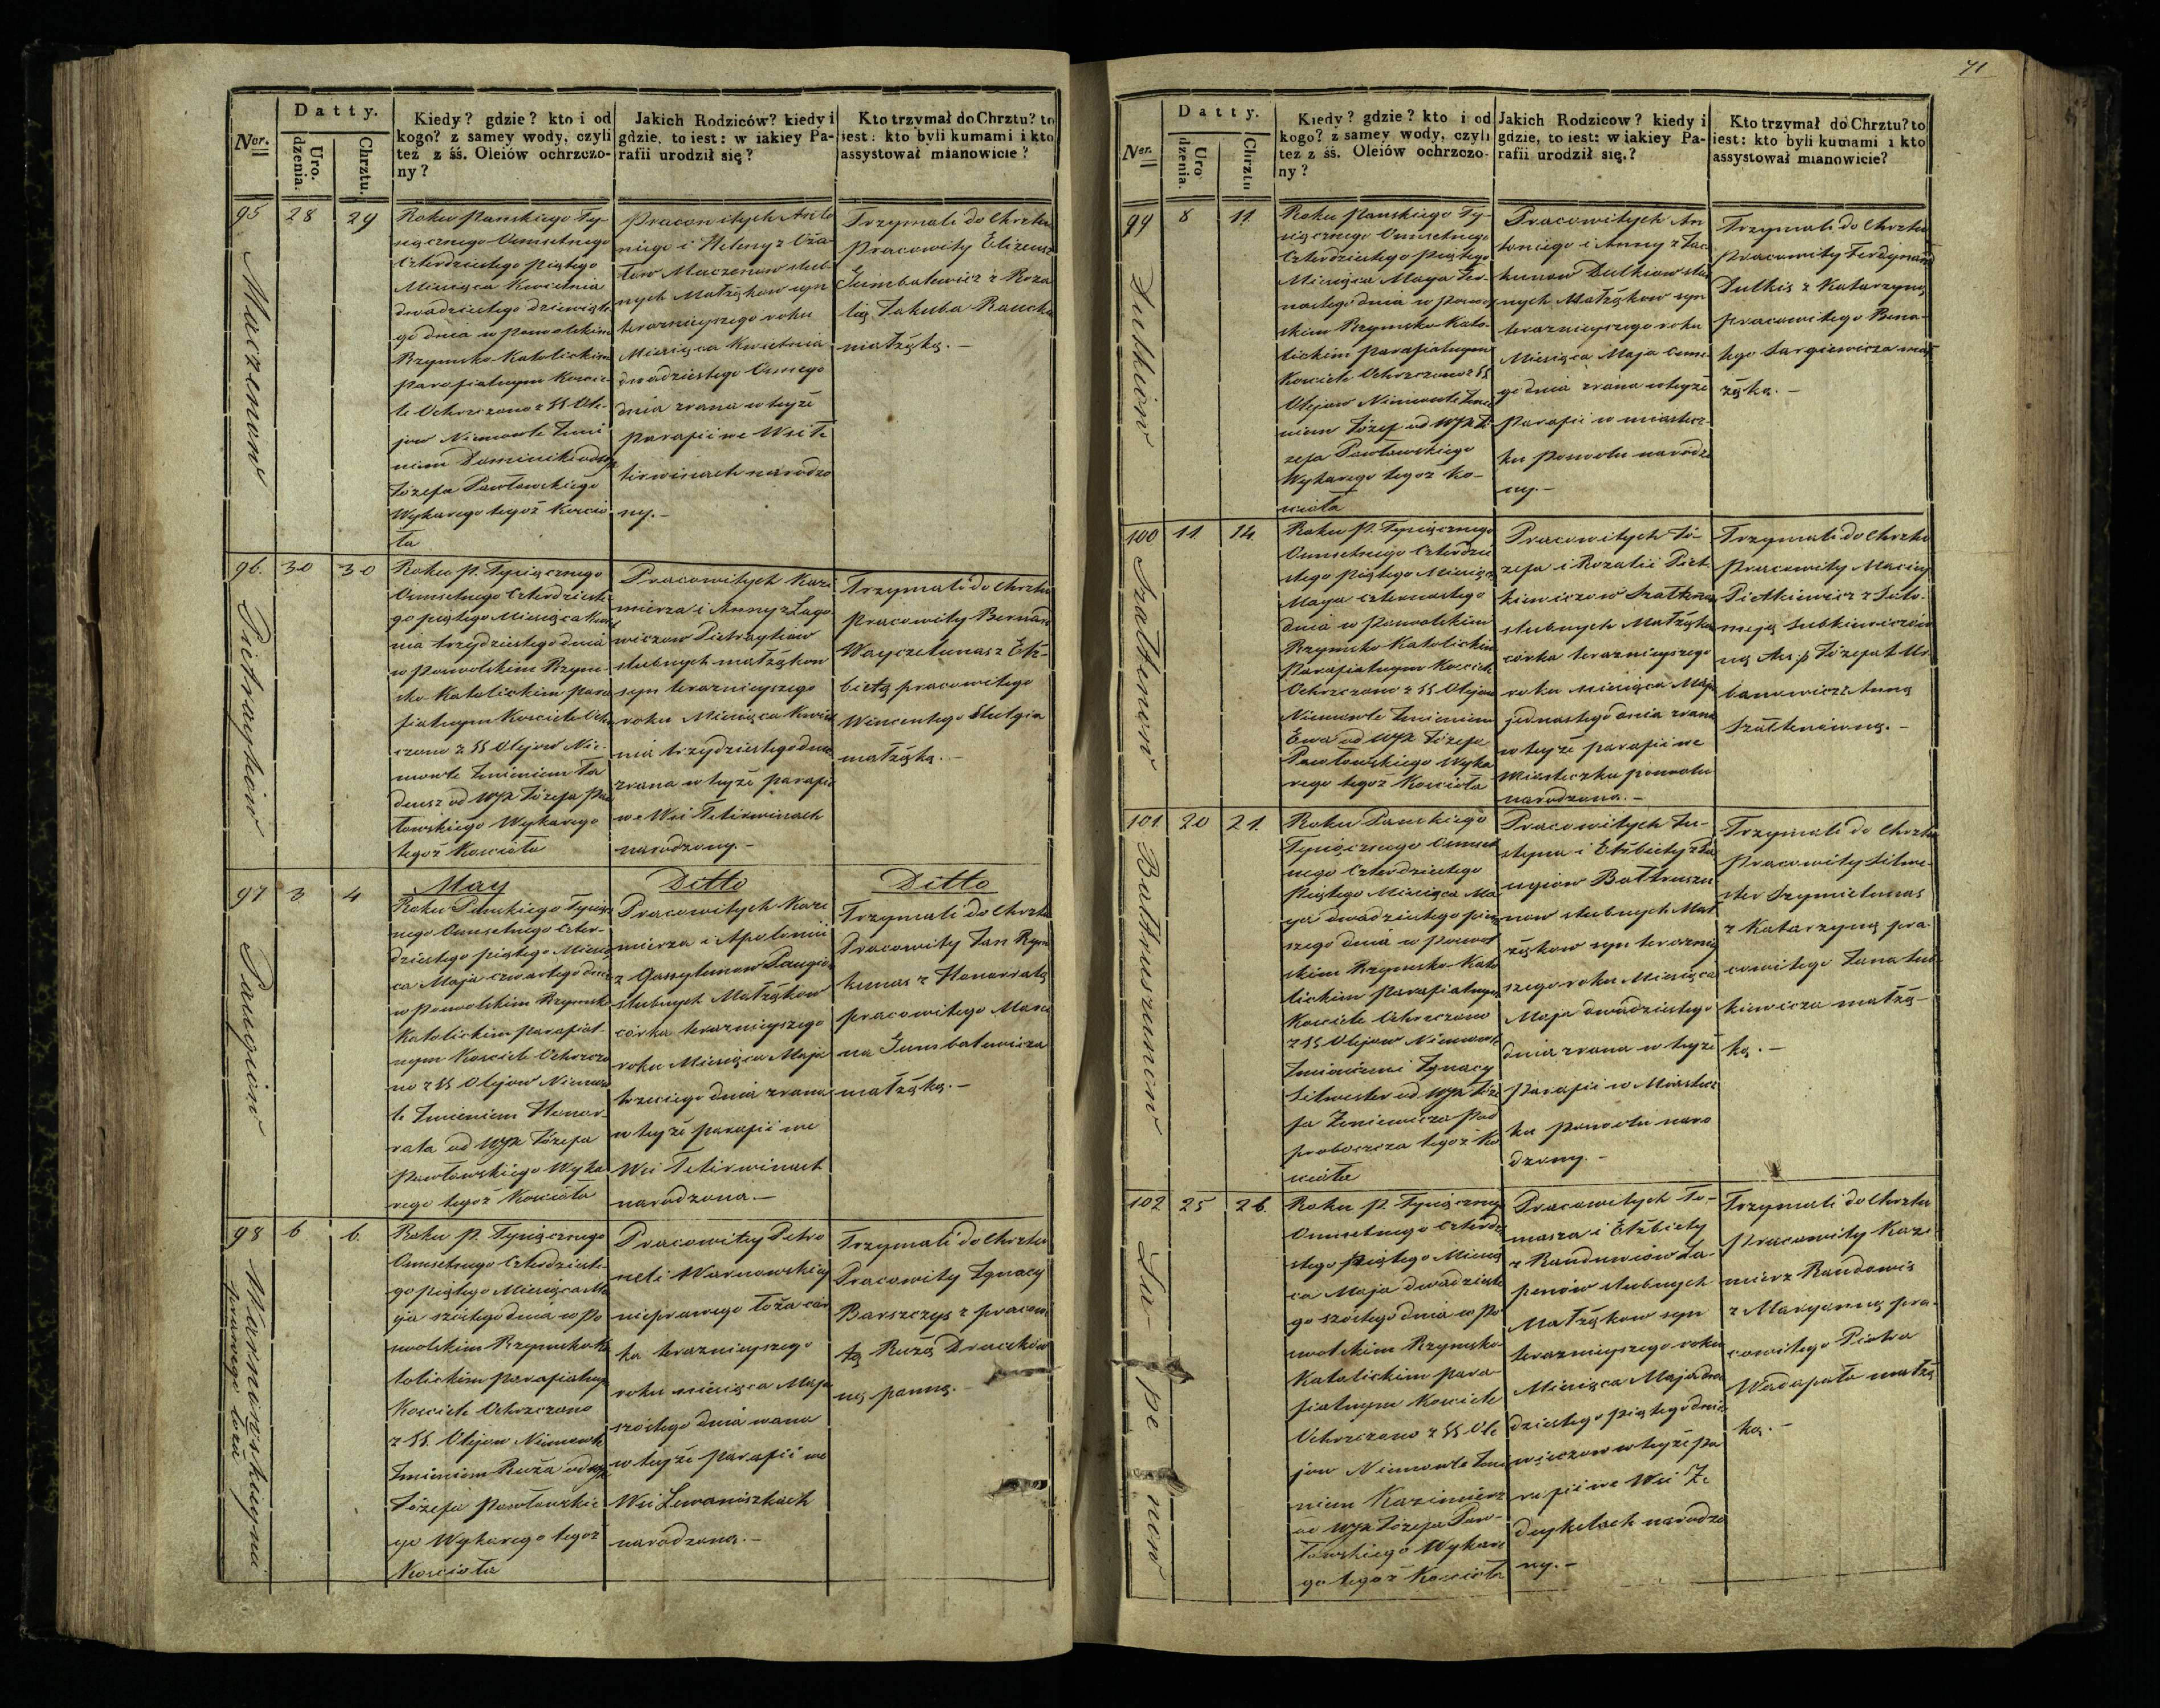 Ner.
Datty.
Uro.
dzenia.
Chrztu.
Kiedy? gdzie? kto i od
kogo? z samey wody, czyli
też z śś. Oleiów ochrzczo-
ny?
Jakich Rodziców? kiedy i
gdzie, to iest: w iakiey Pa-
rafii urodził się?
Kto trzymał do Chrztu? to
iest: kto byli kumami i kto
assystował mianowicie?
95
28
29
Maczenow
Roku Panskiego Ty-
siącznego Osmsetnego
Czterdziestego Piątego
Miesiąca Kwietnia
dwadziestego dziewiąte-
go dnia w Powolskim
Rzymsko-Katolickim
Parafialnym Koscie-
le Ochrzczono z SS Ole-
jow Niemowle Imie
niem Dominik od
Józefa Pawłowskiego
Wykarego tegoż Koscio
ła
Pracowitych Anto
niego i Heleny z
Maczenow slub-
nych Małżąkow syn
terazniejszego roku
Miesiąca Kwietnia
dwadziestego Osmego
dnia zrana w teyże
parafii we Wsi Te
tirwinach narodzo
ny.-
Trzymali do Chrztu
Pracowity Elizeusz
Jumbatewicz z Roza
lią Jakuba
małżąką.-
96.
30
30
Roku P. Tysiącznego
Osmsetnego Czterdzieste
go piątego Miesiąca Kwiet
nia trzydziestego dnia
w Powolskim Rzym-
sko-Katolickim para
fialnym Kosciele Ochrz
czono z SS Olejow Nie-
mowle Imieniem Ta
deusz od WJX Józefa Paw
łowskiego Wykarego
tegoż Kosciola
Pracowitych Kazi
mierza i Anny z Lago
wiczow
slubnych małżąkow
syn terazniejszego
roku Miesiąca Kwiet
nia trzydziestego dnia
zrana w teyże parafii
we Wsi Tetirwinach
narodzony.-
Trzymali do Chrztu
Pracowity Bernard
z Elż-
bietą pracowitego
Wincentego
małżąką.-
97
3
4
May
Roku Panskiego Tysiącz
nego Osmsetnego Czter-
dziestego piątego Miesią
ca Maja czwartego dnia
w Powolskim Rzymsko
Katolickim parafial-
nym Kosciele Ochrzczo
no z SS Olejow Niemow
le Imieniem Honor-
rata od WJX Józefa
Pawłowskiego Wyka
rego tegoż Kosciola
Ditto
Pracowitych Kazi
mierza i Apolonii
slubnych Małżąkow
córka terazniejszego
roku Miesiąca Maja
trzeciego dnia zrana
w teyże parafii we
Wsi Tetirwinach
narodzona.-
Ditto
Trzymali do Chrztu
Pracowity Jan
z Honorratą
pracowitego Marci
na Jumbatewicza
małżąką.-
98
6
6.
Roku P. Tysiącznego
Osmsetnego Czterdzieste-
go piątego Miesiąca Ma
ja szóstego dnia w Po
wolskim Rzymsko Ka
tolickim parafialnym
Kosciele Ochrzczono
z SS. Olejow Niemowle
Imieniem Ruża od WJX
Józefa Pawłowskie
go Wykarego tegoż
Kosciola
Pracowitey Petro
neli Warnowskiey
nieprawego łoża cór
ka terazniejszego
roku miesiąca Maja
szóstego dnia zrana
w teyże parafii we
Wsi Lewaniszkach
narodzona.-
Trzymali do Chrztu
Pracowity Ignacy
Barszczys z pracowi
tą Ružą
ną panną.-
71
Ner.
Datty.
Uro
dzenia.
Chrztu
Kiedy? gdzie? kto i od
kogo? z samey wody, czyli
tez z śś. Oleiów ochrzczo-
ny?
Jakich Rodzicow? kiedy i
gdzie, to iest: w iakiey Pa-
rafii urodził się,?
Kto trzymał do Chrztu? to
iest: kto byli kumami i kto
assystował mianowicie?
99
8
11.
Dulkiow
Roku Panskiego Ty-
siącznego Osmsetnego
Czterdziestego piątego
Miesiąca Maya Jede-
nastego dnia w Powol
skim Rzymsko Kato-
lickim parafialnym
Kosciele Ochrzczono z SS
Olejow Niemowle Imie
niem Józef od WJX Jó
zefa Pawłowskiego
Wykarego tegoż Ko-
sciola
Pracowitych An
toniego i Anny z
Dulkiow slub
nych Małżąkow syn
terazniejszego roku
Miesiąca Maja osme
go dnia zrana w teyże
Parafii w miastecz-
ku Powolu narodzo
ny.-
Trzymali do Chrztu
Pracowity Ferdynand
Dulkis z Katarzyną
pracowitego Bene-
Sargiewicza mał
żąką.-
100
11
14.
Szaltenow
Roku P. Tysiącznego
Osmsetnego Czterdzie
stego piątego Miesiąca
Maya czternastego
dnia w Powolskim
Rzymsko Katolickim
Parafialnym Kosciele
Ochrzczono z SS Olejow
Niemowle Imieniem
Ewa od WJX Józefa
Pawłowskiego Wyka
rego tegoż Kosciola
Pracowitych Jó-
zefa i Rozalii Piet
kiewiczow
slubnych Małżąkow
córka terazniejszego
roku miesiąca Maja
jednastego dnia zrana
w teyże parafii we
Miasteczku powolu
narodzona.-
Trzymali do Chrztu
Pracowity Maciey
Pietkiewicz z
ną Ass:p Józefat Ur
banowicz z Anną
Szalteniowną.-
101
20
21.
Baltruszaniow
Roku Panskiego
Tysiącznego Osmset
nego Czterdziestego
Piątego Miesiąca Ma
ya dwadziestego pier
szego dnia w Powol
skim Rzymsko-Kato
lickim Parafialnym
Kosciele Ochrzczono
z SS Olejow Niemowle
Imionami Ignacy
Silwester od WJX Józe
fa Zeniewicza Pod
proboszcza tegoż Ko
sciola
Pracowitych Ju-
styna i Elżbiety z
slubnych Mał
żąkow syn terazniey
szego roku Miesiąca
Maja dwadziestego
dnia zrana w teyże
Parafii w Miastecz
ku Powolu naro
dzony.-
Trzymali do Chrztu
Pracowity Silwe-
ster Szymielunas
z Katarzyną pra-
cowitego Jana
małżą-
ką.-
102
25
26.
La-pe-now
Roku P. Tysiącznego
Osmsetnego Czterdzie
stego piątego Miesią
ca Maja dwadzieste
go szóstego dnia w Po
wolskim Rzymsko-
Katolickim para-
fialnym Kosciele
Ochrzczono z SS Ole
jow Niemowle Imie
niem Kazimierz
od WJX Józefa Paw-
łowskiego Wykare
go tegoż Kosciola
Pracowitych To-
masza i Elżbiety
z La-
penów slubnych
Małżąkow syn
terazniejszego roku
Miesiąca Maja dwa
dziestego piątego dnia
wieczorem w teyże pa
rafii we Wsi
narodzo
ny.-
Trzymali do Chrztu
Pracowity Kazi
mierz Randowis
z Maryanną pra-
cowitego Piotra
małżą
ką.-